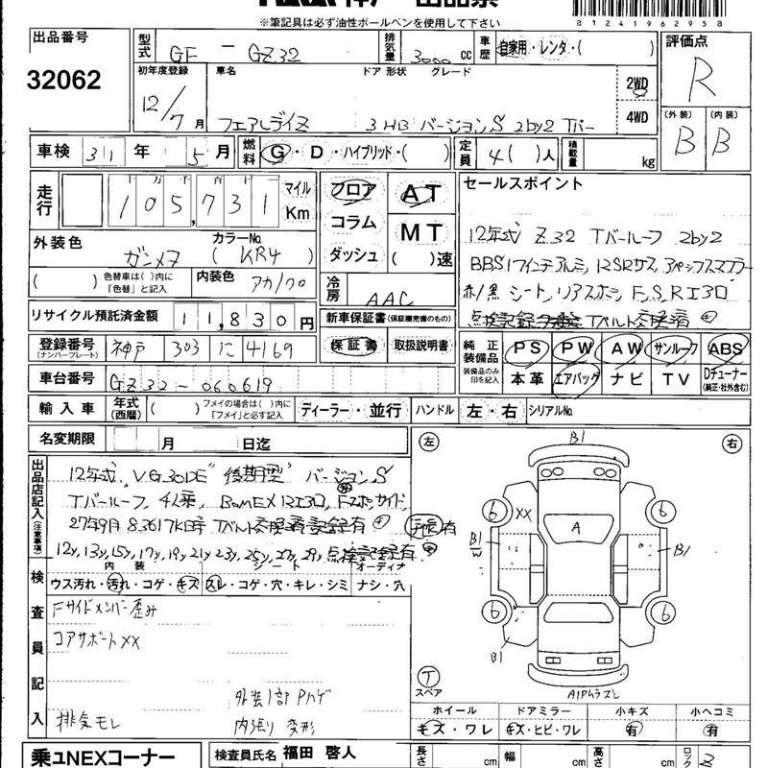 ※筆記具は必ず油性ボールペンを使用して下さい
81241962958
出品番号
32062
型式 GF - GZ32
排気量 3000 cc
車歴 自家用・レンタ・( )
評価点 R
初年度登録 12/7月
車名 フェアレディZ
ドア 形状 グレード
3HB バージョンS 2by2 Tバー
2WD
4WD
(外装) B (内装) B
車検 31年 5月
燃料 G・D・ハイブリッド・( )
定員 4( )人
積載量 kg
走行 105,731 マイル Km
フロア
コラム
ダッシュ
AT
MT
( )速
セールスポイント
12年式 Z32 Tバールーフ 2by2
赤/黒 シート, リアスポ
外装色 ガンメタ
カラーNo. ( KR4 )
( ) 色替車は( )内に「色替」と記入
内装色 アカ/クロ
冷房 AAC
リサイクル預託済金額 11,830円
新車保証書(保証継完備のもの)
保証書 取扱説明書
登録番号(ナンバープレート) 神戸 303 に 4169
車台番号 GZ32-060619
純正装備品 装備品のみ印を記入
PS PW AW サンルーフ ABS
本革 エアバッグ ナビ TV Dチューナー(純正・社外含む)
輸入車 年式(西暦) ( ) フメイの場合は( )内に「フメイ」と必ず記入
ディーラー・並行
ハンドル 左・右 シリアルNo.
名変期限 月 日迄
出品店記入(注意事項)
12年式, VG30DE "後期型" バージョンS
Tバールーフ, 4人乗
12y, 13y, 15y, 17y, 19y, 21y, 23y, 25y, 27y, 29y, 点検記録有
左 右
B1
6 XX 6
A
B1 B1
6 6
B1
T
スペア
検査員記入
内装 シート オーディオ
ウス汚れ・汚れ・コゲ・キズ スレ・コゲ・穴・キレ・シミ ナシ・穴
Fサイドメンバー歪み
コアサポートXX
外装1部 Pハゲ
排気モレ 内張り 変形
ホイール ドアミラー 小キズ 小ヘコミ
キズ・ワレ キズ・ヒビ・ワレ 有 有
乗ユNEXコーナー
検査員氏名 福田 啓人
長さ cm 幅 cm 高さ cm